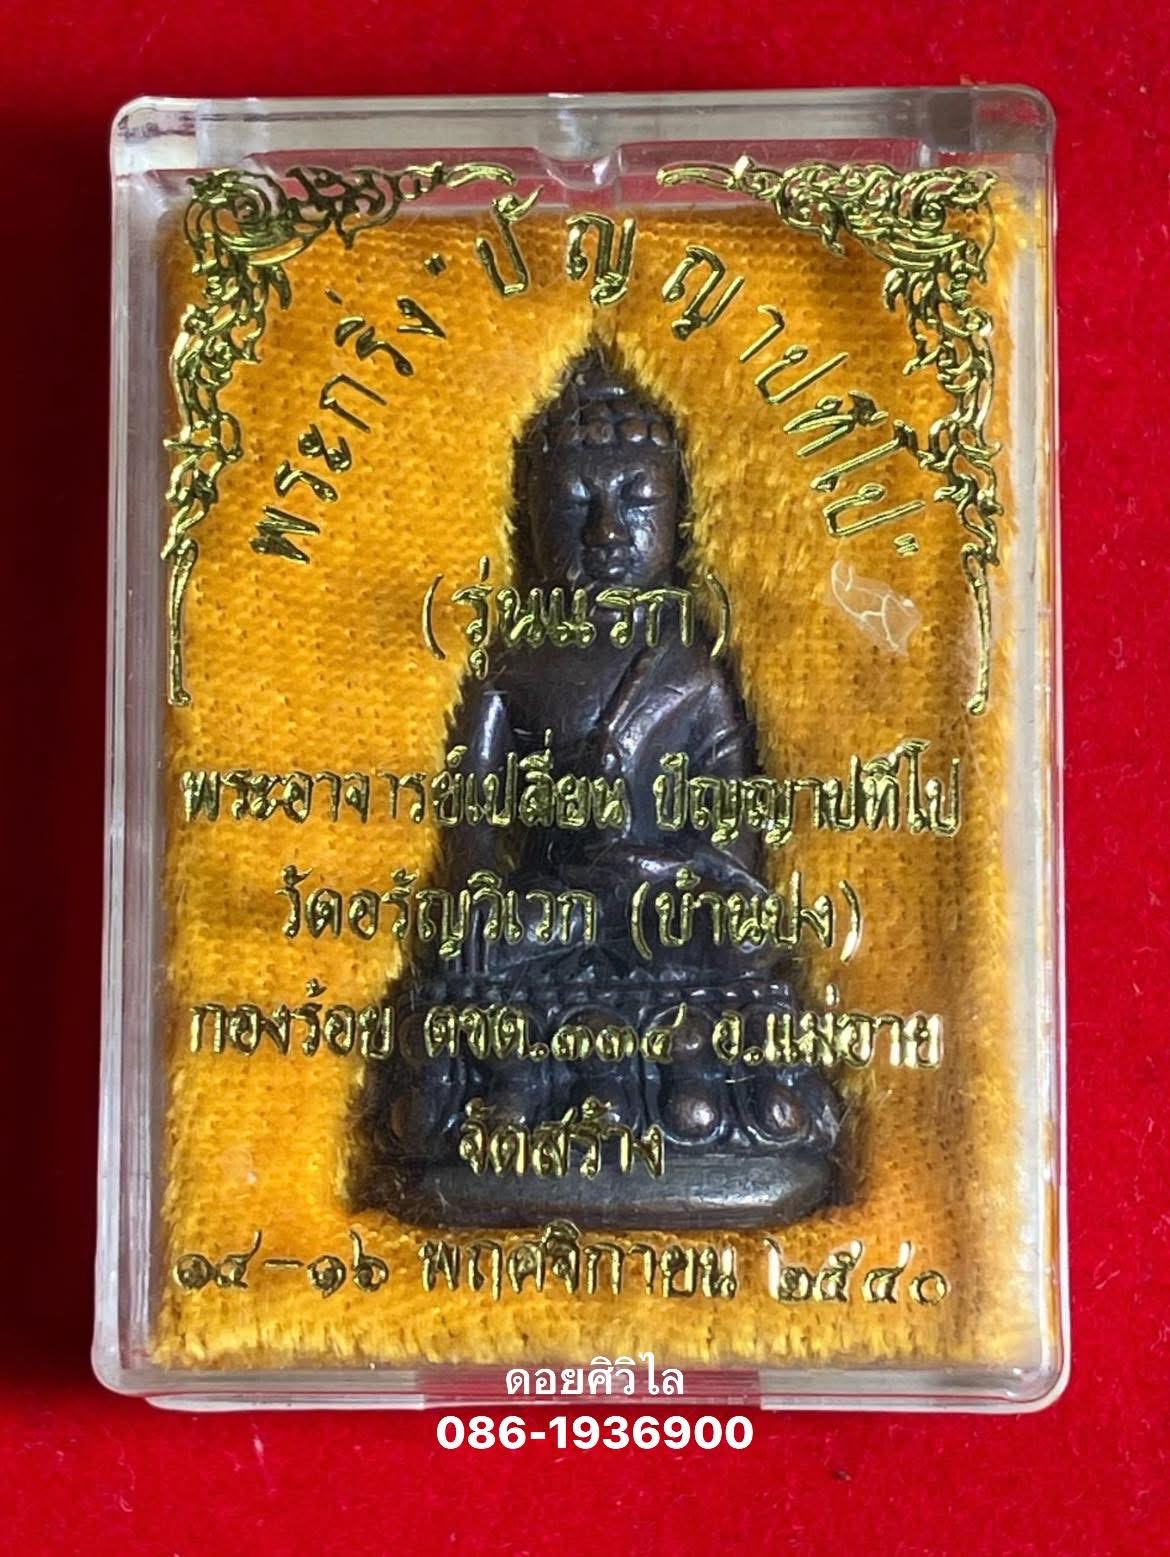 พระกริ่ง "ปัญญาปทีโป"
(รุ่นแรก)
พระอาจารย์เปลี่ยน ปัญญาปทีโป
วัดอรัญวิเวก (บ้านปง)
กองร้อย ตชด.๓๓๔ อ.แม่อาย
จัดสร้าง
๑๔-๑๖ พฤศจิกายน ๒๕๔๐
ดอยศิวิไล
086-1936900